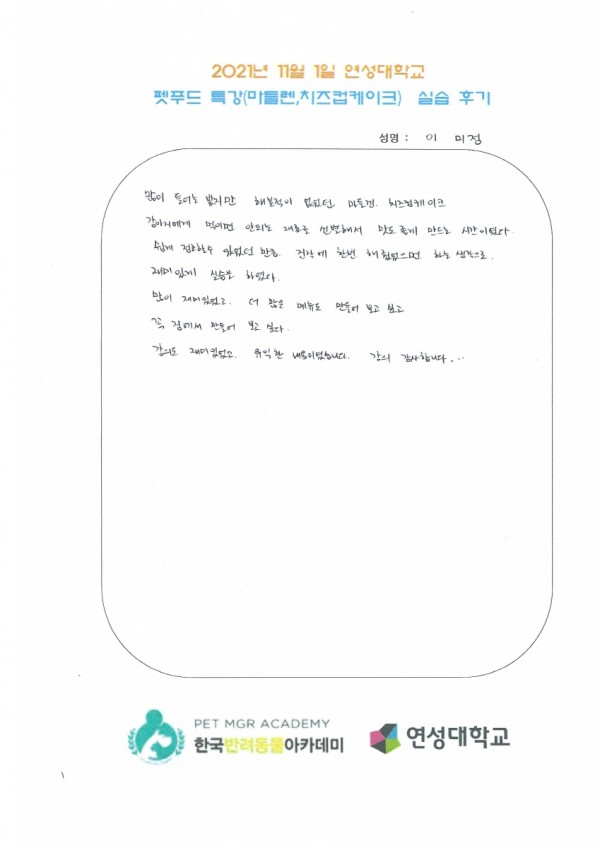 2021년 11월 1일 연성대학교
펫푸드 특강(마들렌,치즈컵케이크) 실습 후기
성명 : 이 미정
많이 들어는 봤지만 해본적이 없었던 마들렌. 치즈컵케이크
강아지에게 먹이면 안되는 재료로 선별해서 맛도 좋게 만드는 시간이었다.
쉽게 접할수 있었던 만큼. 진작에 한번 해 봤었으면 하는 생각으로.
재미있게 실습을 하였다.
많이 재미있었고. 더 많은 메뉴도 만들어 보고 싶고
꼭 집에서 만들어 보고 싶다.
강의도 재미있었고. 유익한 내용이었습니다. 강의 감사합니다...
PET MGR ACADEMY
한국반려동물아카데미
연성대학교